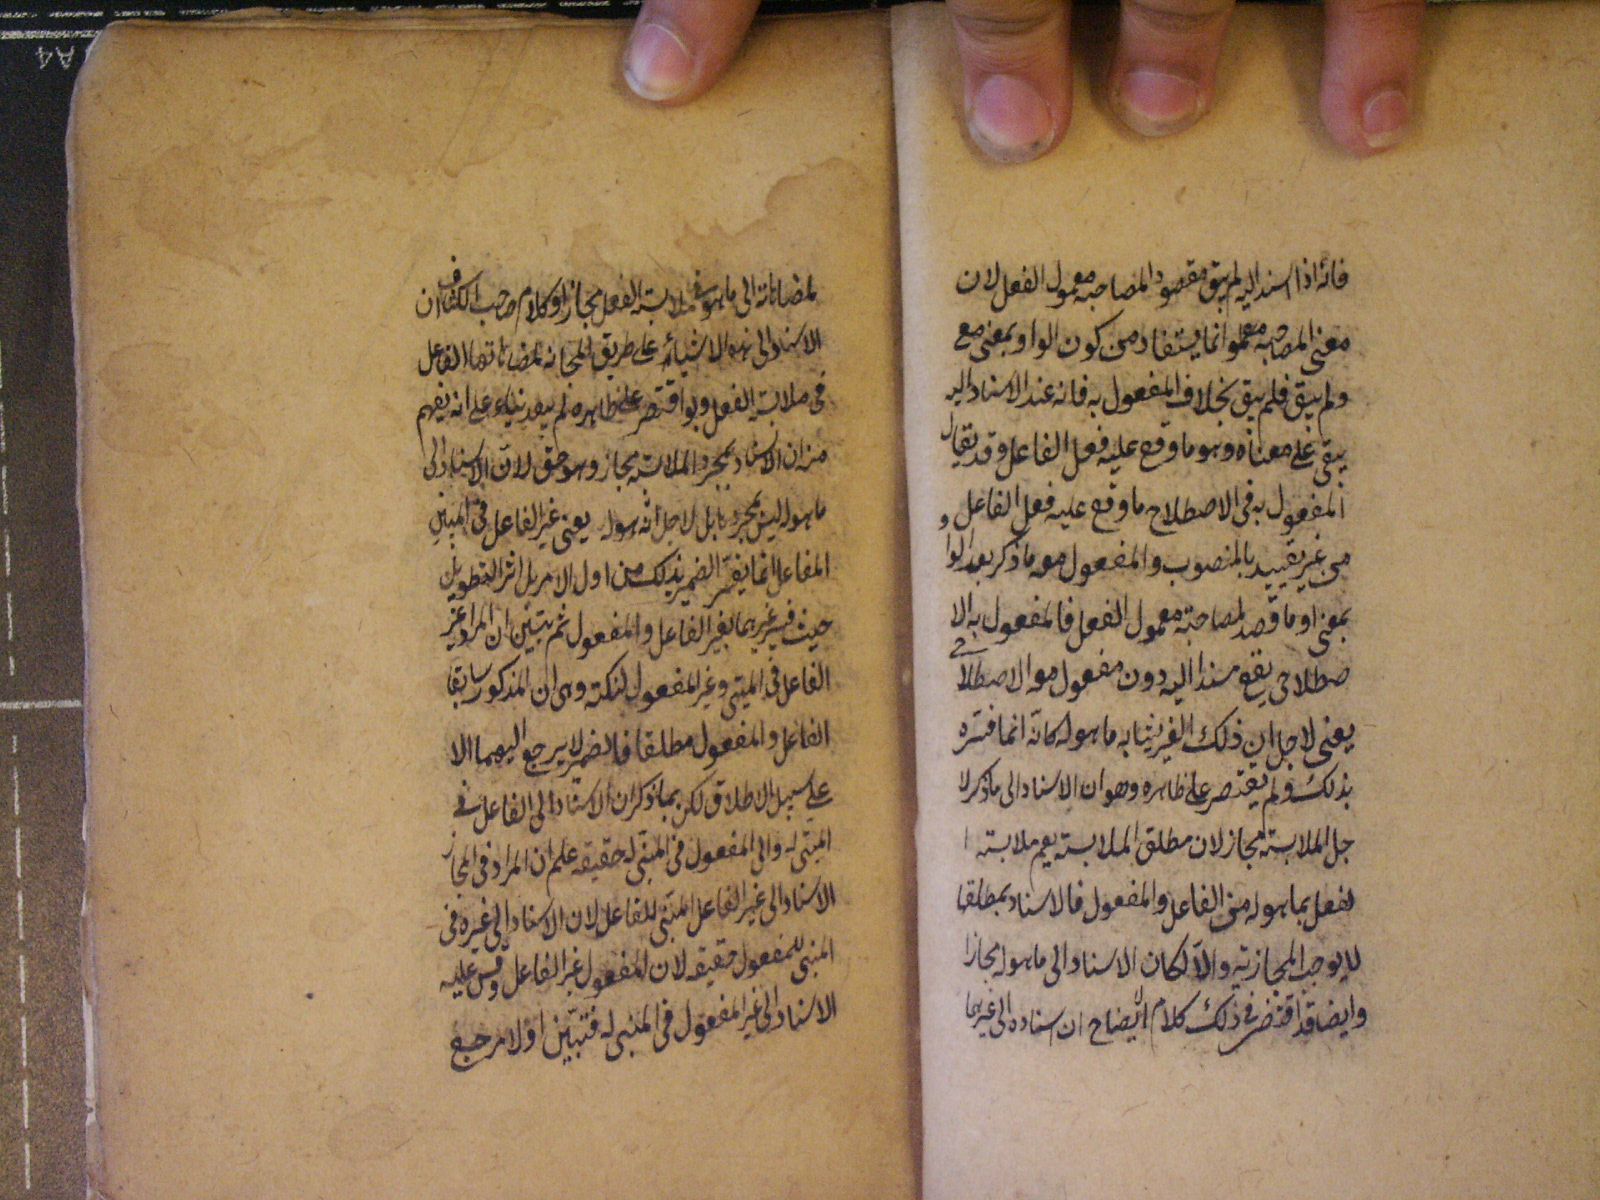 فانه اذا اسند اليه لم يبق مقصود المصاحبة معمول الفعل لان
معنى المصاحبة معمو انما يستفاد من كون الواو بمعنى مع
ولم يبق فلم يبق بخلاف المفعول به فانه عند الاسناد اليه
يبقى على معناه وهو ما وقع عليه فعل الفاعل وقد يقال
المفعول به فى الاصطلاح ما وقع عليه فعل الفاعل و
من غير تقييد بالمنصوب والمفعول معه ما ذكر بعد الوا
بمعنى او ما قصد لمصاحبة معمول الفعل فالمفعول به الا
صطلاحى يقع مسندا اليه دون مفعول معه الاصطلاحى
يعنى لاجل ان ذلك الغير يشابه ما هو له كانه انما فسره
بذلك ولم يقتصر على ظاهره وهو ان الاسناد الى ما ذكر لا
جل الملابسة مجاز لان مطلق الملابسة يعم ملابسة ا
لفعل بما هو له من الفاعل والمفعول فالاسناد بمطلقا
لا يوجب المجازية والا لكان الاسناد الى ما هو له مجازا
وايضا قد اقتضر فى ذلك كلام الايضاح ان اسناده الى غيرهما
لمضاهاته الى ما هو فى ملابسة الفعل مجاز او كلام صاحب الكشاف ان
الاسناد الى هذه الاشياء على طريق المجاز لمضاهاتها الفاعل
فى ملابسة الفعل ولو اقتصر على ظاهره لم يبعد بناء على انه يفهم
منه ان الاسناد بمجرد الملابسة مجاز وهو حق لان الاسناد الى
ما هو له ليس بمجردها بل لاجل انه هو له يعنى غير الفاعل فى المبنى
المفاعل انما يفسر الضمير بذلك من اول الامر بل اثر التطويل
حيث فسر غيرهما بغير الفاعل والمفعول ثم تبين ان المراد غير
الفاعل فى المبنى وغير المفعول لنكتة وهى ان المذكور سابقا
الفاعل والمفعول مطلقا فالضمير لا يرجع اليهما الا
على سبيل الاطلاق لكن بما ذكر ان الاسناد الى الفاعل فى
المبنى له والى المفعول فى المبنى له حقيقة علم ان المراد فى المجاز
الاسناد الى غير الفاعل المبنى للفاعل لان الاسناد الى غيره فى
المبنى للمفعول حقيقة لان المفعول غير الفاعل وقس عليه
الاسناد الى غير المفعول فى المبنى له فتبين اولا مرجع